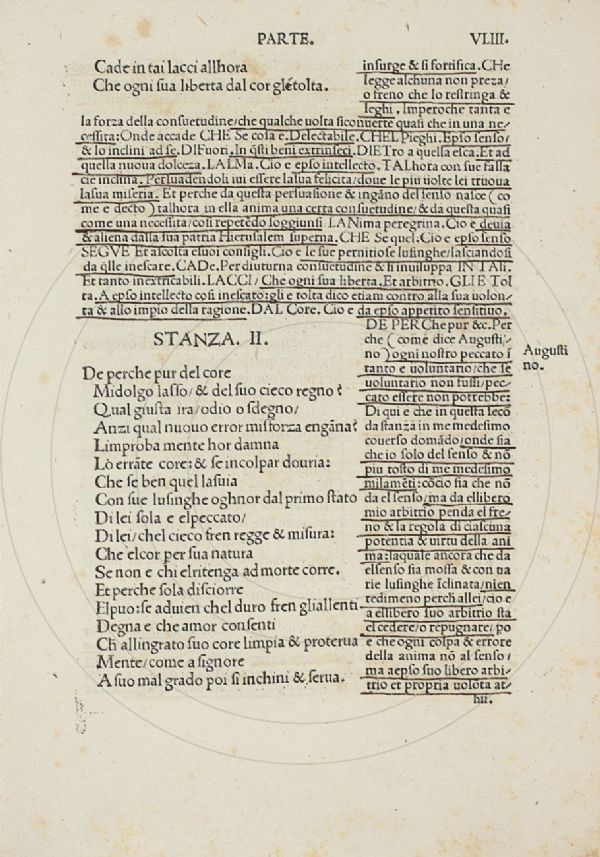 PARTE. VLIII.
Cade in tai lacci allhora
Che ogni sua liberta dal cor gle tolta.
insurge & si fortifica. CHe
legge alchuna non preza/
o freno che lo restringa &
leghi. Imperoche tanta e
la forza della consuetudine/che qualche uolta si conuerte quasi che in una ne/
cessita: Onde accade CHE Se cosa e. Delectabile. CHEL Pieghi. Epso senso/
& lo inclini ad se. DI Fuori. In q̃sti beni extrinseci. DIETro a quella esca. Et ad
quella nuoua dolceza. LALMa. Cio e epso intellecto. TALhora con sue falsa
cie inclina. Persuadendoli iui essere la sua felicita/doue le piu uolte lei truoua
la sua miseria. Et perche da questa persuasione & ingãno del senso nasce (co
me e decto) talhora in ella anima una certa consuetudine/& da questa quasi
come una necessita/cosi repetẽdo soggiunsi LANima peregrina. Cio e deuia
& aliena dalla sua patria Hierusalem superna. CHE Se quel. Cio e epso senso
SEGVE Et ascolta e suoi consigli. Cio e le sue pernitiose lusinghe/lasciandosi
da q̃lle inescare. CADe. Per diuturna consuetudine & si inuiluppa IN TALi.
Et tanto inextricabili. LACCI/ Che ogni sua liberta. Et arbitrio. GLIE Tol
ta. A epso intellecto cosi inescato: gli e tolta dico etiam contro alla sua uolon/
ta & allo impio della ragione. DAL Core. Cio e da epso appetito sensitiuo.
STANZA. II.
De perche pur del core
Mi dolgo lasso/& del suo cieco regno?
Qual giusta ira/odio o sdegno/
Anzi qual nuouo error mi sforza engãna?
Limproba mente hor damna
Lo errãte core: & se incolpar douria:
Che se ben quel lasuia
Con sue lusinghe oghnor dal primo stato
Di lei sola e el peccato/
Di lei/chel cieco fren regge & misura:
Che el cor per sua natura
Se non e chi el ritenga ad morte corre.
Et perche sola disciorre
El puo: se aduien chel duro fren gli allenti
Degna e che amor consenti
Ch̃ allingrato suo core limpia & proterua
Mente/come a signore
A suo mal grado poi si inchini & serua.
DE PERChe pur &c. Per
che (come dice Augusti/
no) ogni nostro peccato ĩ
tanto e uoluntario/che se
uoluntario non fussi/pec/
cato essere non potrebbe:
Di qui e che in questa secõ
da stanza in me medesimo
cõuerso domãdo/onde sia
che io solo del senso & nõ
piu tosto di me medesimo
mi lamẽti: cõcio sia che nõ
da el senso/ma da el libero
mio arbitrio penda el fre/
no & la regola di ciascuna
potentia & uirtu della ani
ma: laquale ancora che da
el senso sia mossa & con ua
rie lusinghe ĩclinata/nien
tedimeno perch̃ a llei/cio e
a el libero suo arbitrio sta
el cedere/o repugnare/ po
e che ogni colpa & errore
della anima nõ al senso/
ma a epso suo libero arbi/
trio et propria uolõta at/
hii.
Augusti
no.